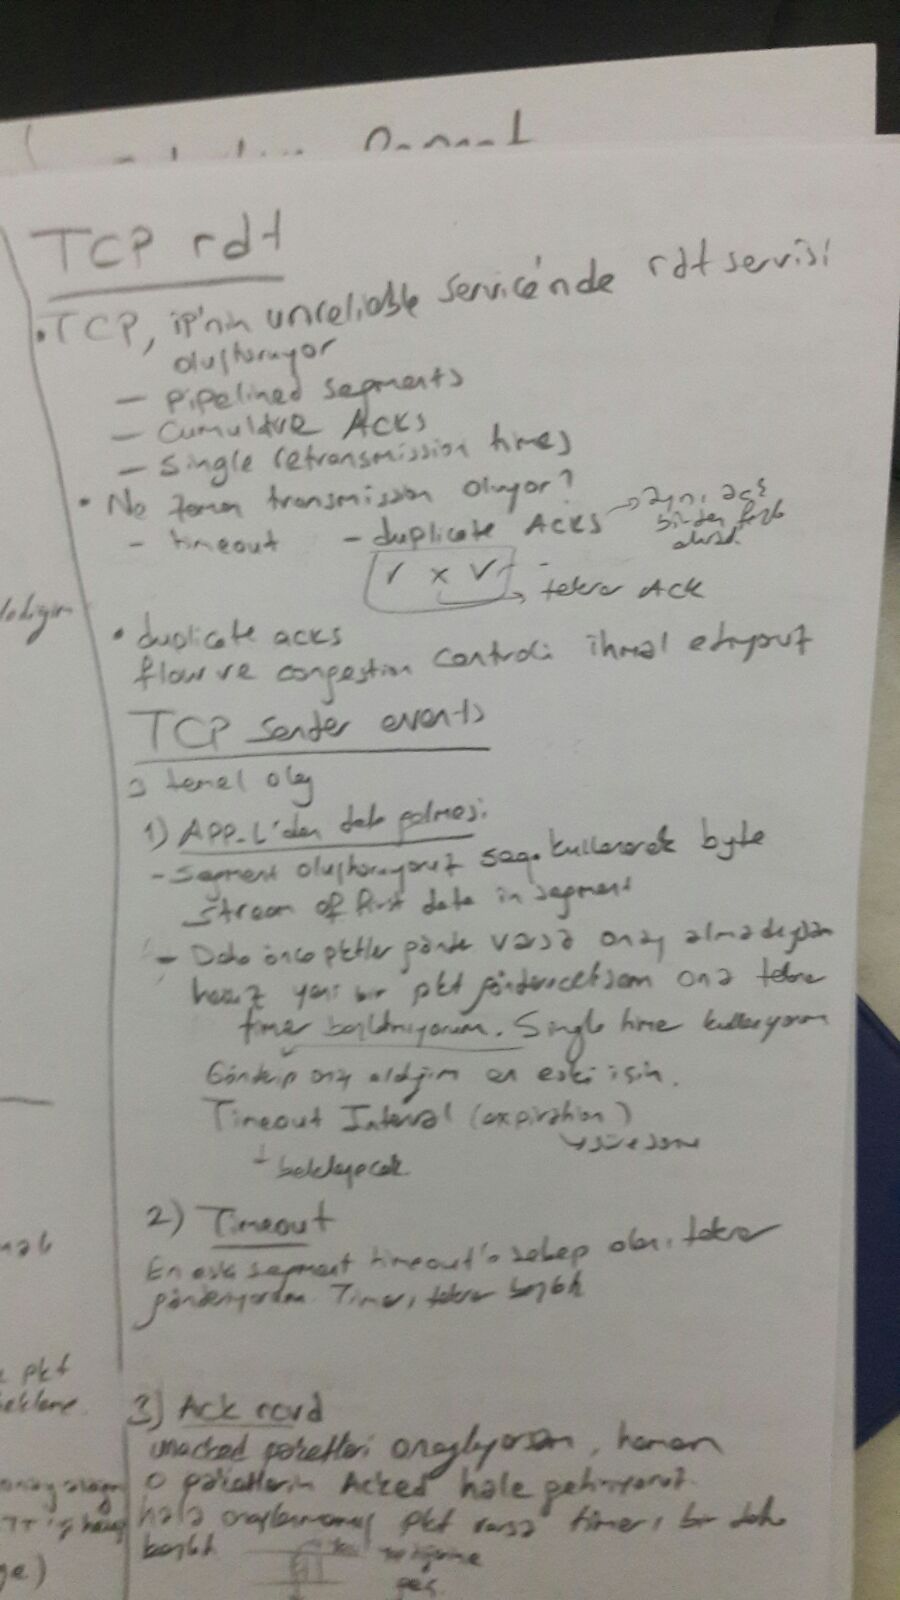 TCP rdt
• TCP, ip'nin unreliable service'nde rdt servisi
oluşturuyor
- pipelined segments
- Cumulative Acks
- Single retransmission timer
• Ne zaman transmission oluyor?
- timeout - duplicate Acks → aynı ack
birden fazla
alırsak
✓ x ✓
→ tekrar Ack
• duplicate acks
flow ve congestion control: ihmal ediyoruz
TCP Sender events
3 temel olay
1) App-L'den data gelmesi
- Segment oluşturuyoruz seq. kullanarak byte
stream of first data in segment
- Daha önce pktler varsa onay almadıysam
henüz yeni bir pkt göndereceksem ona tekrar
timer başlatmıyorum. Single timer kullanıyorum
en eski için.
Timeout Interval (expiration)
bekleyecek
2) Timeout
En eski segment timeout'a sebep olan, tekrar
Timer, tekrar başlat
3) Ack rcvd
unacked paketleri onaylıyorsam, hemen
o paketlerin Acked hale getiriyoruz.
hala onaylanmamış pkt varsa timer, bir daha
başlat
pkt